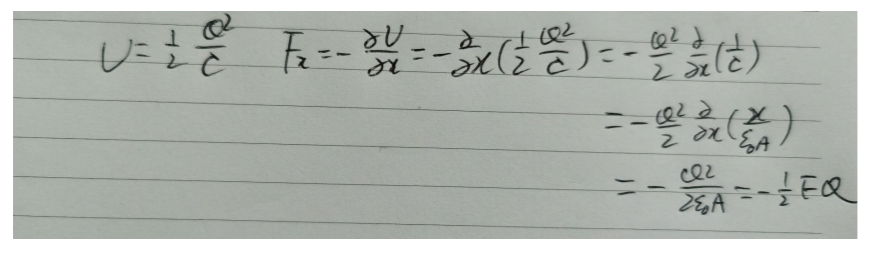 U = 1/2 Q²/C  F_x = -∂U/∂x = -∂/∂x (1/2 Q²/C) = -Q²/2 ∂/∂x (1/C)
= -Q²/2 ∂/∂x (x/ε₀A)
= -Q²/2ε₀A = -1/2 EQ